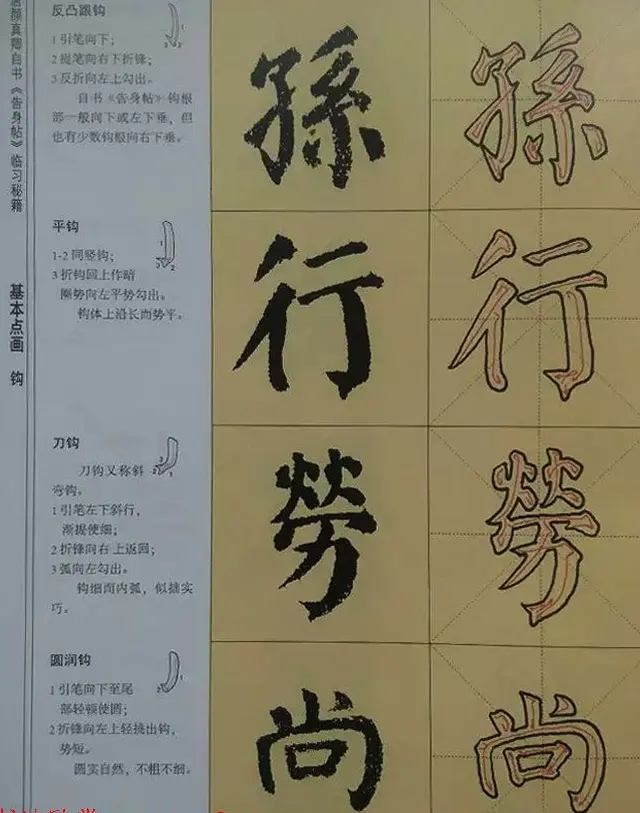 颜真卿自书《告身帖》临习秘籍
基本点画 钩
反凸跟钩
1 引笔向下；
2 提笔向右下折锋；
3 反折向左上勾出。
自书《告身帖》钩根
部一般向下或左下垂，但
也有少数钩根向右下垂。
孫
孫
平钩
1-2 同竖钩；
3 折钩回上作暗
圈势向左平势勾出。
钩体上沿长而势平。
行
行
刀钩
刀钩又称斜
弯钩。
1 引笔左下斜行，
渐提使细；
2 折锋向右上返回；
3 弧向左勾出。
钩细而内弧，似拙实
巧。
勞
勞
圆润钩
1 引笔向下至尾
部轻顿使圆；
2 折锋向左上轻挑出钩，
势短。
圆实自然，不粗不细。
尚
尚